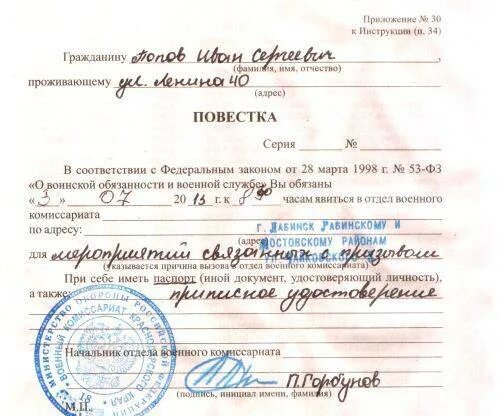 Приложение № 30
к Инструкции (п. 34)
Гражданину Попов Иван Сергеевич,
(фамилия, имя, отчество)
проживающему ул. Ленина 40
(адрес)
ПОВЕСТКА
Серия № 
В соответствии с Федеральным законом от 28 марта 1998 г. № 53-ФЗ
«О воинской обязанности и военной службе» Вы обязаны
« 3 » 07 2013 г. к 8 30 часам явиться в отдел военного
комиссариата
по адресу: г. ЛАБИНСК ЛАБИНСКОМУ И
(адрес) МОСТОВСКОМУ РАЙОНАМ
УЛ. ЧАЙКОВСКОГО
для мероприятий связанных с призывом
(указывается причина вызова в отдел военного комиссариата)
При себе иметь паспорт (иной документ, удостоверяющий личность),
а также: приписное удостоверение
Начальник отдела военного комиссариата
П.Горбунов
(подпись, инициал имени, фамилия)
М.П.
МИНИСТЕРСТВО ОБОРОНЫ РОССИЙСКОЙ ФЕДЕРАЦИИ
ВОЕННЫЙ КОМИССАРИАТ КРАСНОДАРСКОГО КРАЯ